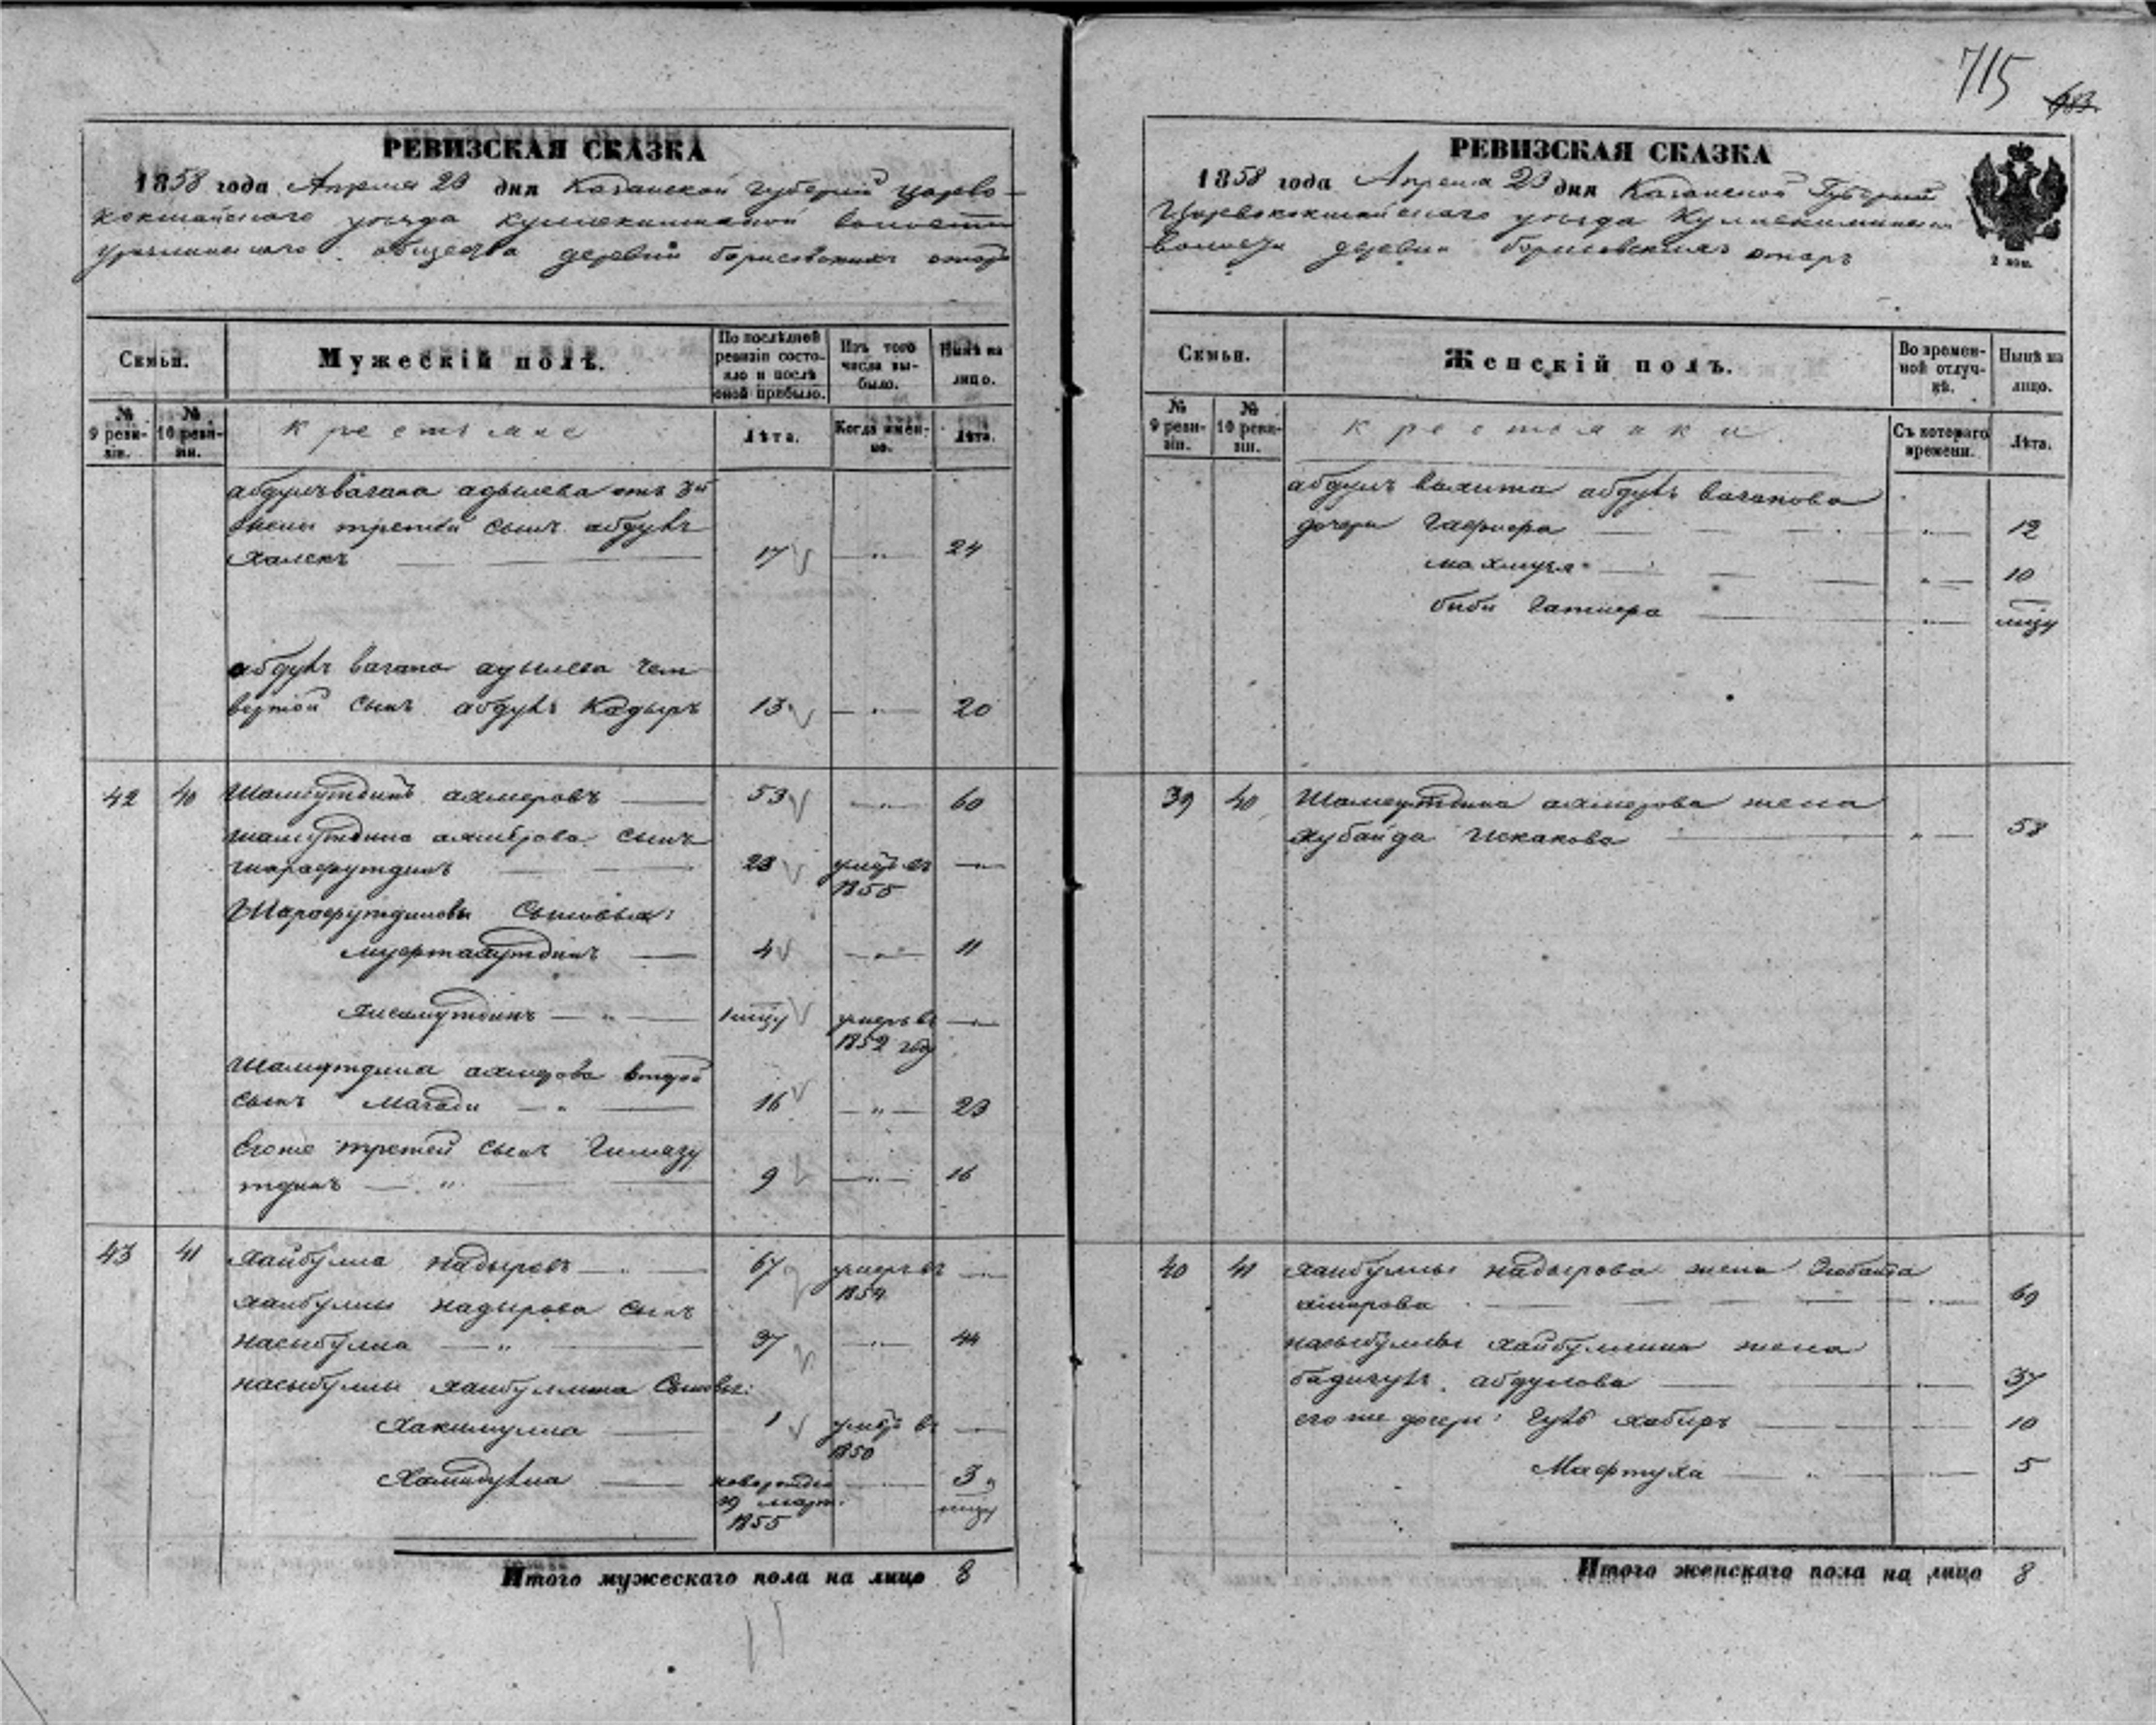 РЕВИЗСКАЯ СКАЗКА
1858 года Апреля 23 дня Казанской Губернии Царево-
кокшайскаго уезда волости
общества деревни борисовских отар
Семьи. Мужескій полъ. По послѣдней ревизіи состояло и послѣ оной прибыло. Изъ того числа выбыло. Нынѣ на лицо.
№ 9 ревизіи. № 10 ревизіи. Крестьяне Лѣта. Когда именно. Лѣта.
абдулъвагапа адылева отъ 3й
жены третей сынъ абдулъ
Халекъ 17 — " — 24
абдулъ вагапа адылева чет
вертой сынъ абдулъ Кадыръ 13 — " — 20
42 40 Шамсутдинъ ахмеровъ 53 — " — 60
ахмерова сынъ
шарафутдинъ 23 въ
1855
Шарафутдиновы Сыновья:
4 — " — 11
Хисамутдинъ — " — умеръ въ
1852 году
ахмерова второй
сынъ Магади — " — 16 — " — 23
Егоже третей сынъ Гилязу
тдинъ — " — 9 — " — 16
43 41 Хайбулла надыровъ — " — 67 умеръ въ
1854
хайбуллы надырова сынъ
насыбулла — " — 37 — " — 44
насыбуллы хайбуллина Сыновья:
Хакимулла 1 въ
1850
Хамидулла новорожден 3
март.
1855
Итого мужескаго пола на лицо 8
715
683
РЕВИЗСКАЯ СКАЗКА
1858 года Апреля 23 дня Казанской Губернии
Царевококшайскаго уезда
волости деревни борисовскихъ отаръ
2 коп.
Семьи. Женскій полъ. Во временной отлучкѣ. Нынѣ на лицо.
№ 9 ревизіи. № 10 ревизіи. Крестьянки Съ котораго времени. Лѣта.
абдулъ вахита абдулъ вагапова
дочери — " — 12
— " — 10
биби — " —
39 40 Шамсутдина ахмерова жена
хубайда Искакова — " — 58
40 41 хайбуллы надырова жена Зюбайда
амирова — " — 69
насыбуллы хайбуллина жена
абдулова — " — 37
его же дочери: Хабиръ 10
Мафтуха — " — 5
Итого женскаго пола на лицо 8